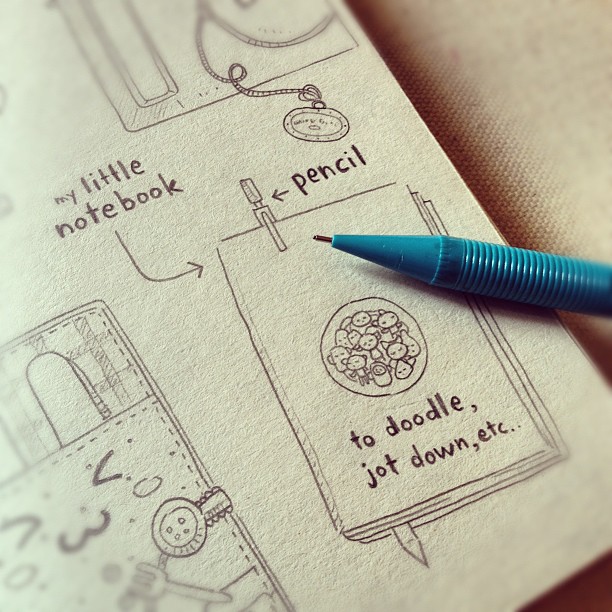 my little
notebook
pencil
to doodle,
jot down, etc..